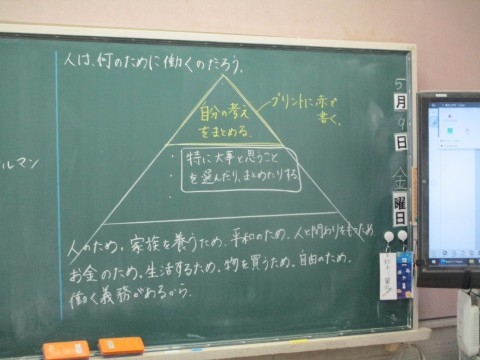 人は、何のために働くのだろう。
自分の考え
をまとめる。
プリントに赤で
書く。
特に大事と思うこと
を選んだり、まとめたりする
人のため。家族を養うため。平和のため。人と関わりをもつため
お金のため。生活するため。物を買うため。自由のため。
働く義務があるから。
ルマン
5
月
9
日
金
曜
日